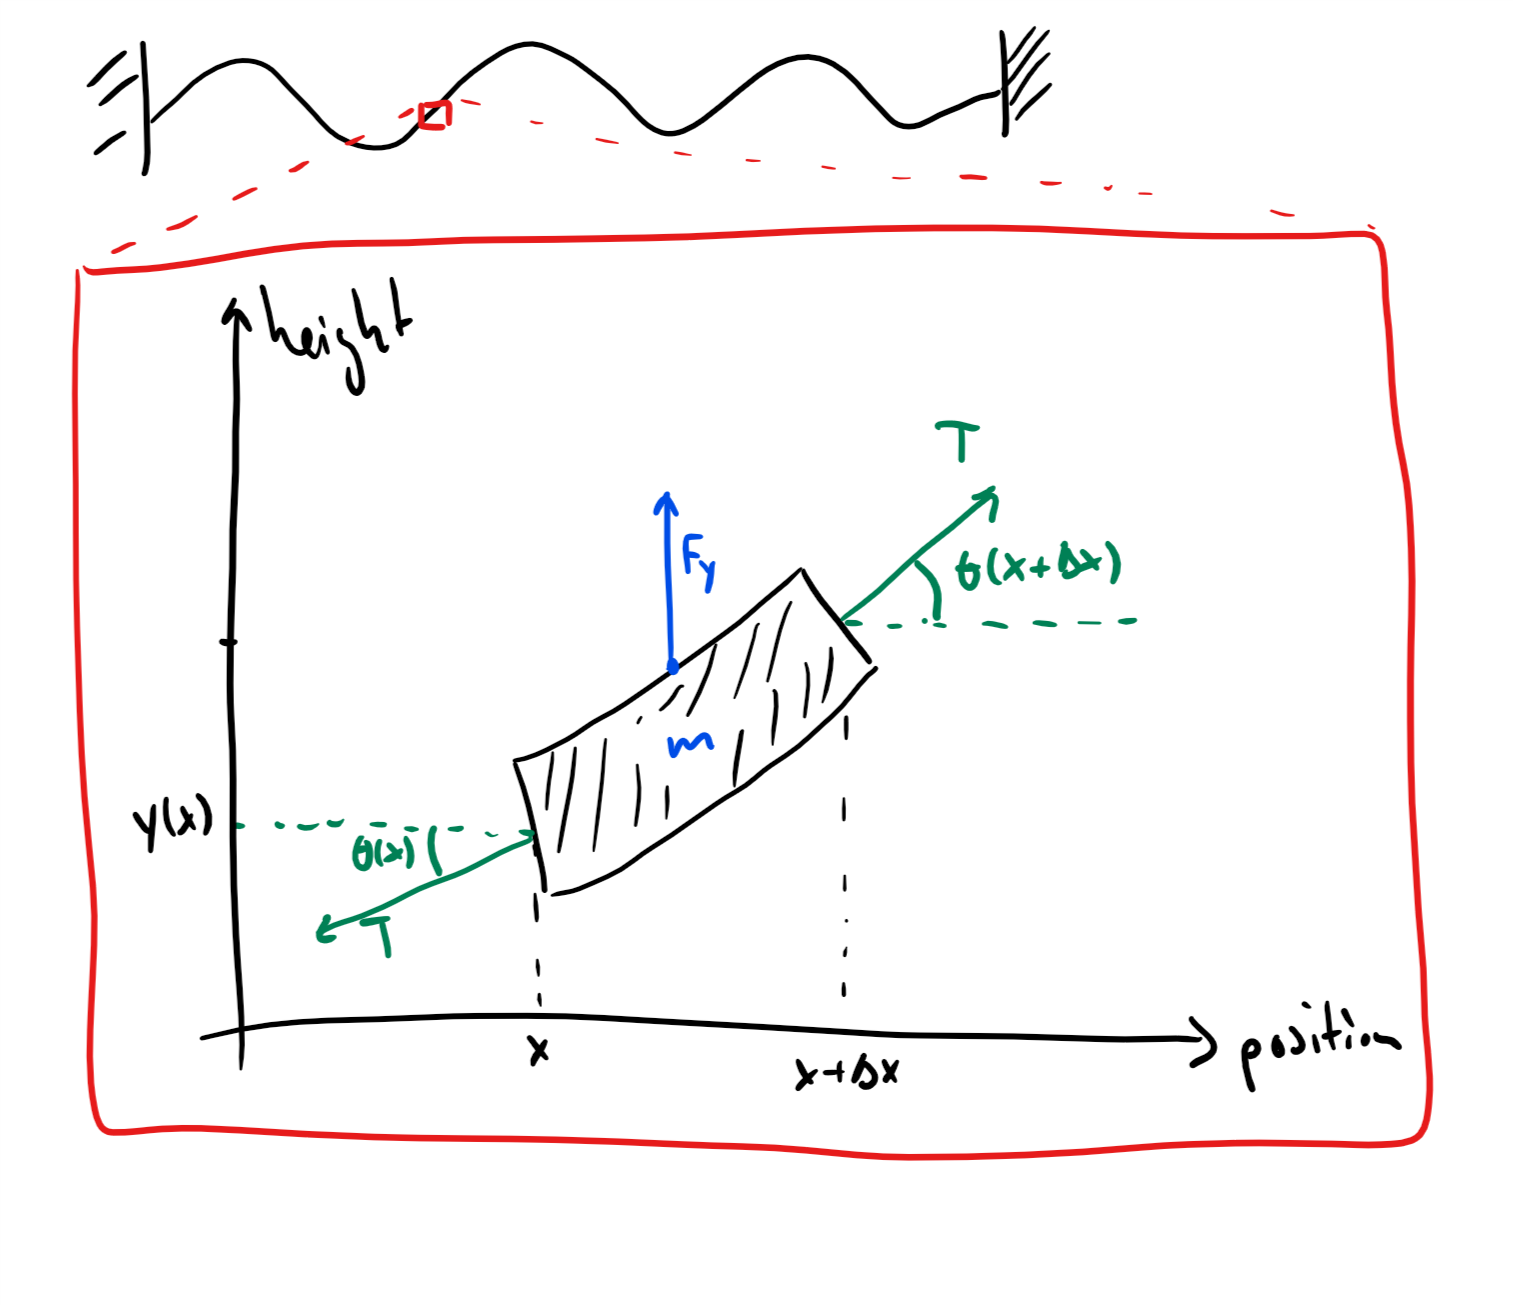 height
T
Fy
θ(x+Δx)
m
y(x)
θ(x)
T
x
x+Δx
position